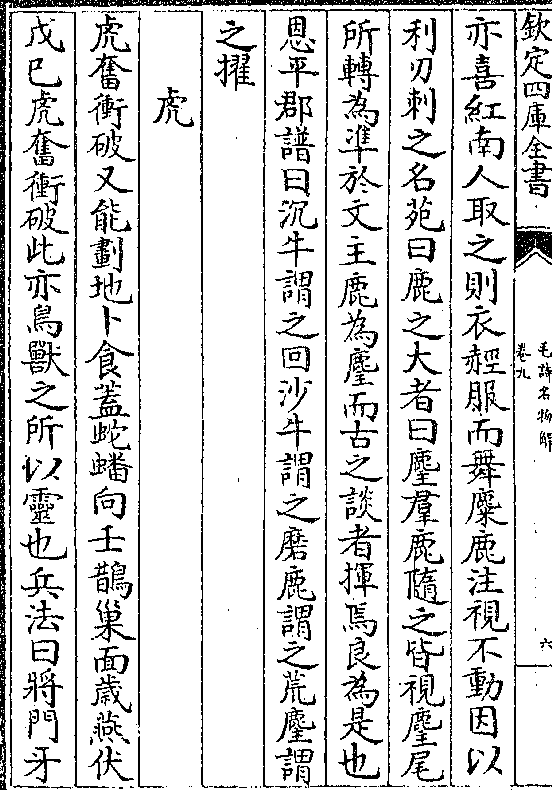 欽定四庫全書
毛詩名物解
卷九
六
亦喜紅南人取之則衣赬服而舞麋鹿注視不動因以
利刃刺之名苑曰鹿之大者曰麈羣鹿隨之皆視麈尾
所轉為準於文主鹿為麈而古之談者揮焉良為是也
恩平郡譜曰沉牛謂之回沙牛謂之磨鹿謂之荒麈謂
之擢
虎
虎奮衝破又能劃地卜食蓋蛇蟠向壬鵲巢面歲燕伏
戊巳虎奮衝破此亦鳥獸之所以靈也兵法曰將門牙